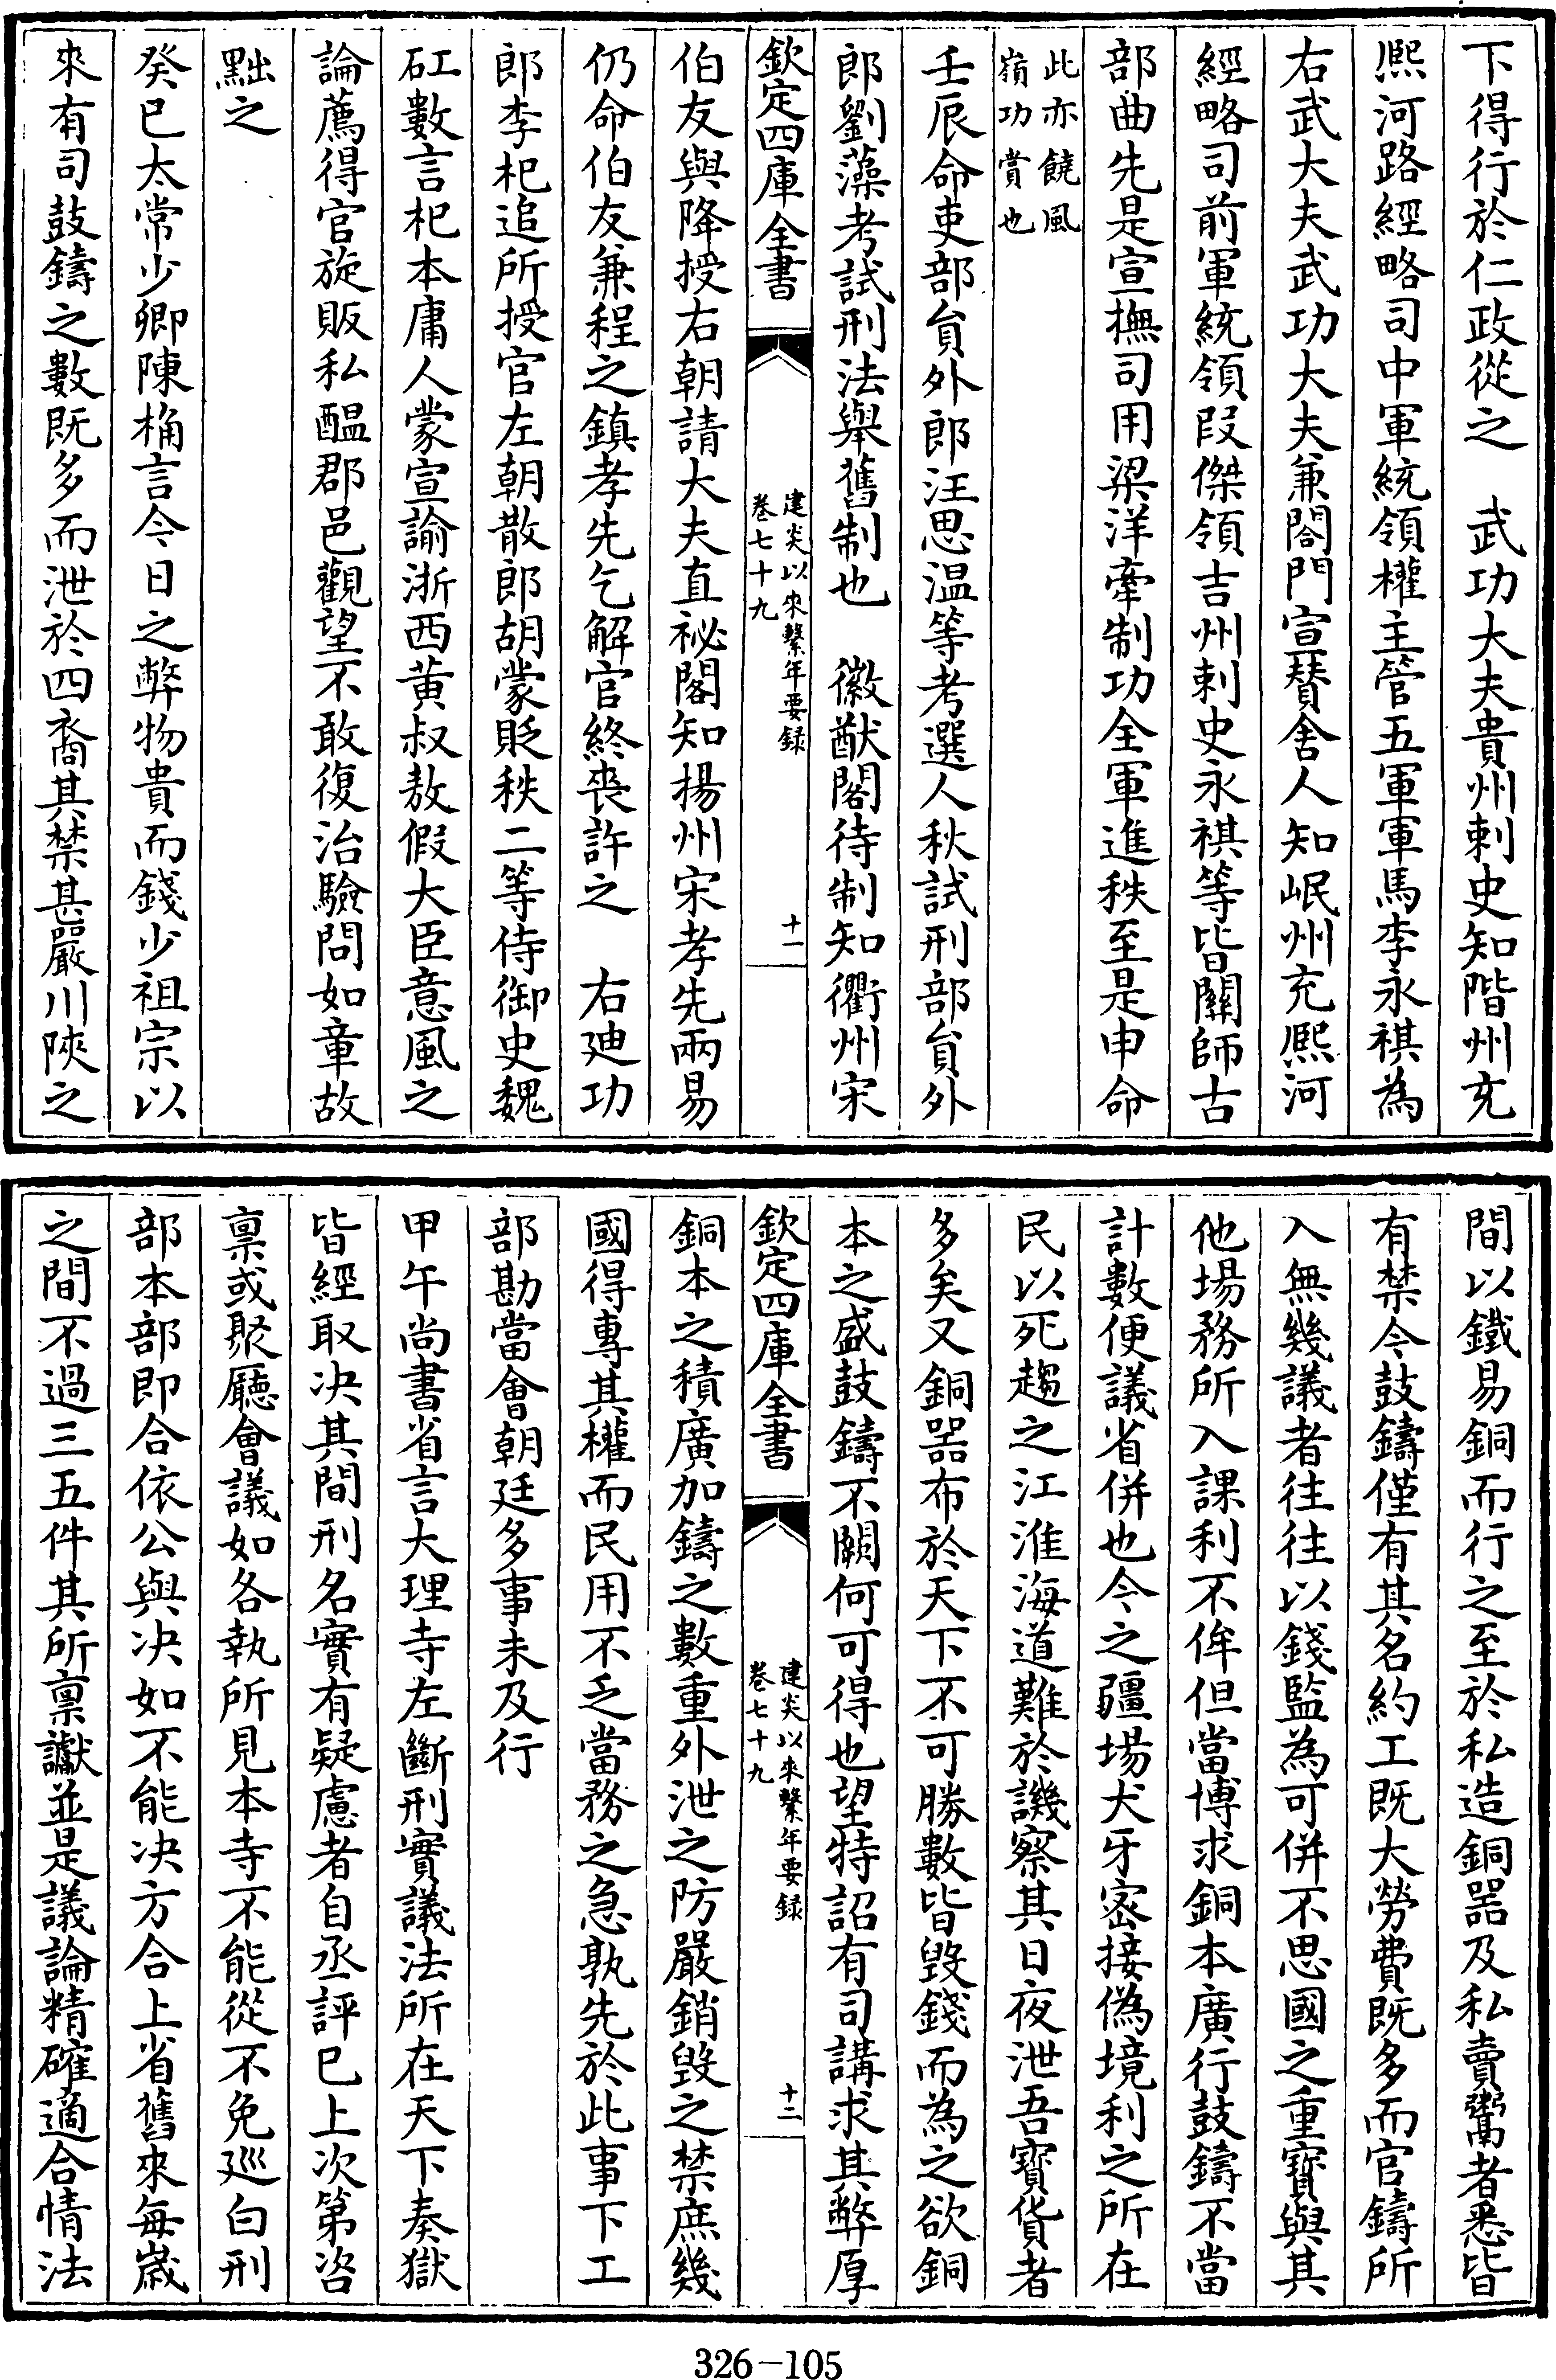 下得行於仁政從之　武功大夫貴州刺史知階州充
熈河路經略司中軍統領權主管五軍軍馬李永祺為
右武大夫武功大夫兼閤門宣賛舍人知岷州充熈河
經略司前軍統領叚傑領吉州刺史永祺等皆關師古
部曲先是宣撫司用梁洋牽制功全軍進秩至是申命
此亦饒風
嶺功賞也
壬辰命吏部員外郎汪思温等考選人秋試刑部員外
郎劉藻考試刑法舉舊制也　徽猷閣待制知衢州宋
欽定四庫全書
建炎以來繫年要録
卷七十九
十一
伯友與降授右朝請大夫直祕閣知揚州宋孝先兩易
仍命伯友兼程之鎮孝先乞解官終喪許之　右廸功
郎李杞追所授官左朝散郎胡蒙貶秩二等侍御史魏
矼數言杞本庸人蒙宣諭浙西黄叔敖假大臣意風之
論薦得官旋販私醖郡邑觀望不敢復治驗問如章故
黜之
癸巳太常少卿陳桷言今日之弊物貴而錢少祖宗以
來有司鼓鑄之數既多而泄於四裔其禁甚嚴川陜之
間以鐵易銅而行之至於私造銅器及私賣鬻者悉皆
有禁今鼓鑄僅有其名約工既大勞費既多而官鑄所
入無幾議者往往以錢監為可併不思國之重寶與其
他場務所入課利不侔但當博求銅本廣行鼓鑄不當
計數便議省併也今之疆場犬牙宻接偽境利之所在
民以死趨之江淮海道難於譏察其日夜泄吾寳貨者
多矣又銅噐布於天下不可勝數皆毁錢而為之欲銅
本之盛鼓鑄不闕何可得也望特詔有司講求其弊厚
欽定四庫全書
建炎以來繫年要録
卷七十九
十二
銅本之積廣加鑄之數重外泄之防嚴銷毁之禁庶幾
國得專其權而民用不乏當務之急孰先於此事下工
部勘當會朝廷多事未及行
甲午尚書省言大理寺左斷刑實議法所在天下奏獄
皆經取决其間刑名實有疑慮者自丞評巳上次第咨
禀或聚廳會議如各執所見本寺不能從不免廵白刑
部本部即合依公與决如不能决方合上省舊來每嵗
之間不過三五件其所禀讞並是議論精確適合情法
326-105